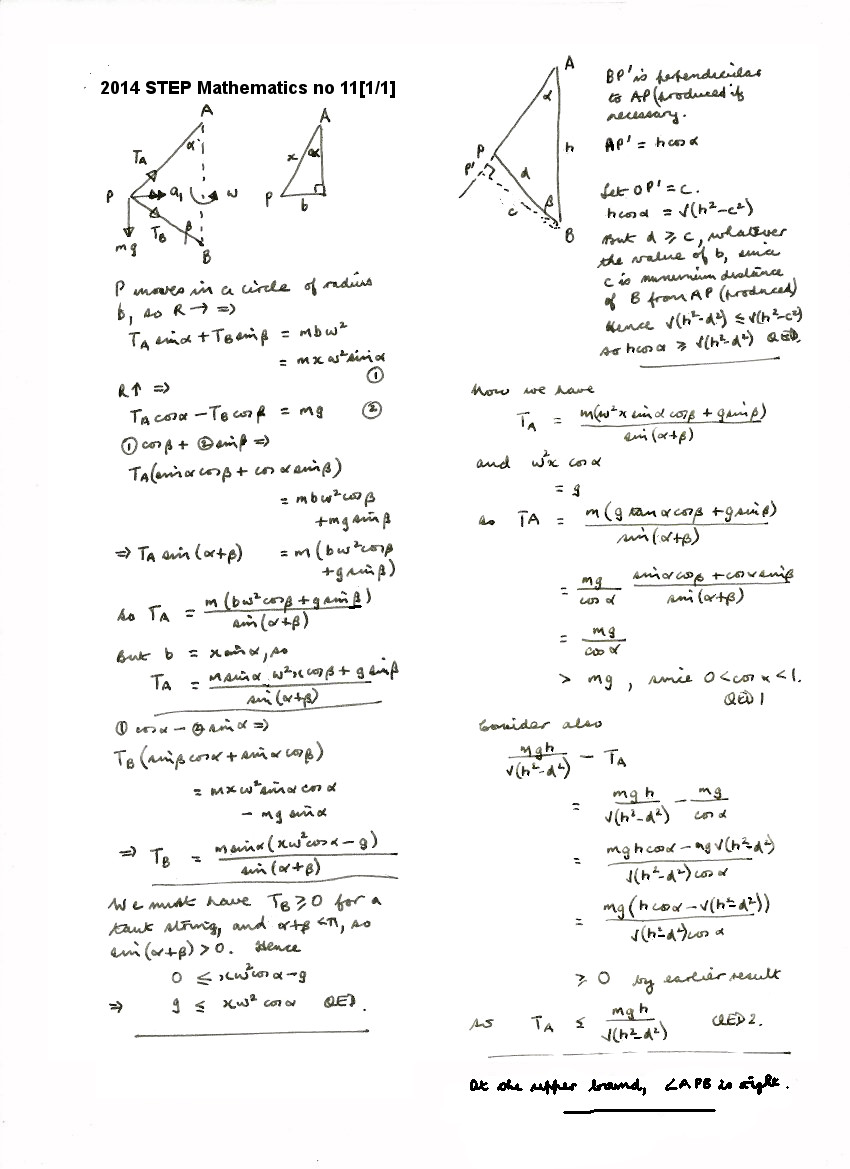 2014 STEP Mathematics no 11[1/1]
A
α
T_A
P
a₁
ω
T_B
β
mg
B
A
x
α
P
b
P moves in a circle of radius
b, so R → ⇒
T_A sinα + T_B sinβ = mbω²
= mxω² sinα
①
R↑ ⇒
T_A cosα − T_B cosβ = mg ②
① cosβ + ② sinβ ⇒
T_A(sinα cosβ + cosα sinβ)
= mbω² cosβ
+ mg sinβ
⇒ T_A sin(α+β) = m(bω² cosβ
+ g sinβ)
so T_A = m(bω² cosβ + g sinβ) / sin(α+β)
But b = x sinα, so
T_A = m sinα. ω²x cosβ + g sinβ / sin(α+β)
① cosα − ② sinα ⇒
T_B(sinβ cosα + sinα cosβ)
= mxω² sinα cosα
− mg sinα
⇒ T_B = m sinα(xω² cosα − g) / sin(α+β)
We must have T_B ≥ 0 for a
taut string, and α+β < π, so
sin(α+β) > 0. Hence
0 ≤ xω² cosα − g
⇒ g ≤ xω² cosα QED.
A
α
P
P'
h
d
c
β
B
BP' is perpendicular
to AP (produced if
necessary.
AP' = h cosα
Let OP' = c.
h cosα = √(h²−c²)
But d ≥ c, whatever
the value of b, since
c is minimum distance
of B from AP (produced)
Hence √(h²−d²) ≤ √(h²−c²)
so h cosα ≥ √(h²−d²) QED.
Now we have
T_A = m(ω²x sinα cosβ + g sinβ) / sin(α+β)
and ω²x cosα
= g
so TA = m(g tanα cosβ + g sinβ) / sin(α+β)
= mg / cosα sinα cosβ + cosα sinβ / sin(α+β)
= mg / cosα
> mg, since 0 < cosα < 1.
QED 1
Consider also
mgh / √(h²−d²) − T_A
= mgh / √(h²−d²) − mg / cosα
= mgh cosα − mg√(h²−d²) / √(h²−d²) cosα
= mg(h cosα − √(h²−d²)) / √(h²−d²) cosα
≥ 0 by earlier result
so T_A ≤ mgh / √(h²−d²) QED 2.
At the upper bound, ∠APB is right.